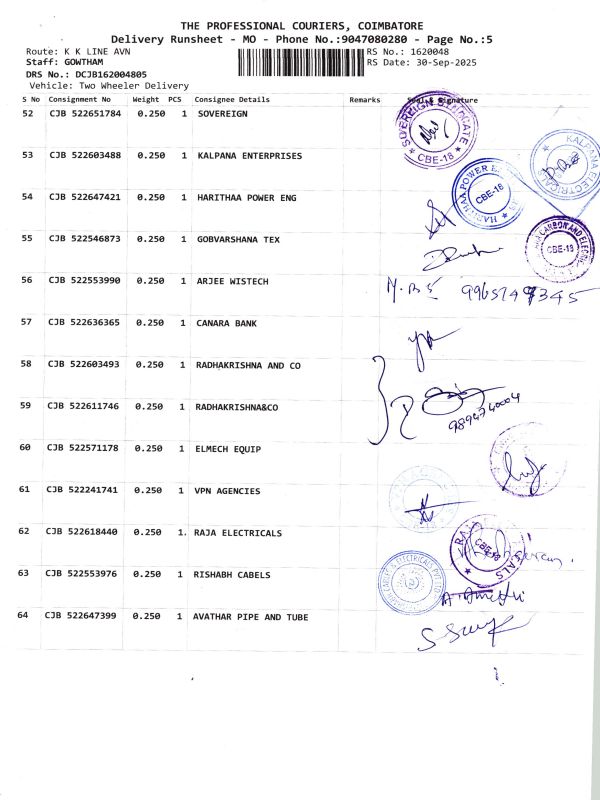 THE PROFESSIONAL COURIERS, COIMBATORE
Delivery Runsheet - MO - Phone No.:9047080280 - Page No.:5
Route: K K LINE AVN RS No.: 1620048
Staff: GOWTHAM RS Date: 30-Sep-2025
DRS No.: DCJB162004805
Vehicle: Two Wheeler Delivery
S No Consignment No Weight PCS Consignee Details Remarks Seal & Signature
52 CJB 522651784 0.250 1 SOVEREIGN
SOVEREIGN SYNDICATE
CBE-18
53 CJB 522603488 0.250 1 KALPANA ENTERPRISES
KALPANA ELECTRICAL
54 CJB 522647421 0.250 1 HARITHAA POWER ENG
HARITHAA POWER
CBE-18
55 CJB 522546873 0.250 1 GOBVARSHANA TEX
CARBON AND ELECTRI
CBE-18
56 CJB 522553990 0.250 1 ARJEE WISTECH
57 CJB 522636365 0.250 1 CANARA BANK
58 CJB 522603493 0.250 1 RADHAKRISHNA AND CO
59 CJB 522611746 0.250 1 RADHAKRISHNA&CO
9894740004
60 CJB 522571178 0.250 1 ELMECH EQUIP
61 CJB 522241741 0.250 1 VPN AGENCIES
62 CJB 522618440 0.250 1. RAJA ELECTRICALS
CBE-18
63 CJB 522553976 0.250 1 RISHABH CABELS
64 CJB 522647399 0.250 1 AVATHAR PIPE AND TUBE